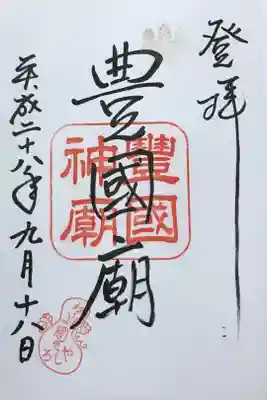 登拝
豊國廟
豐國
神廟
平成二十八年九月十八日